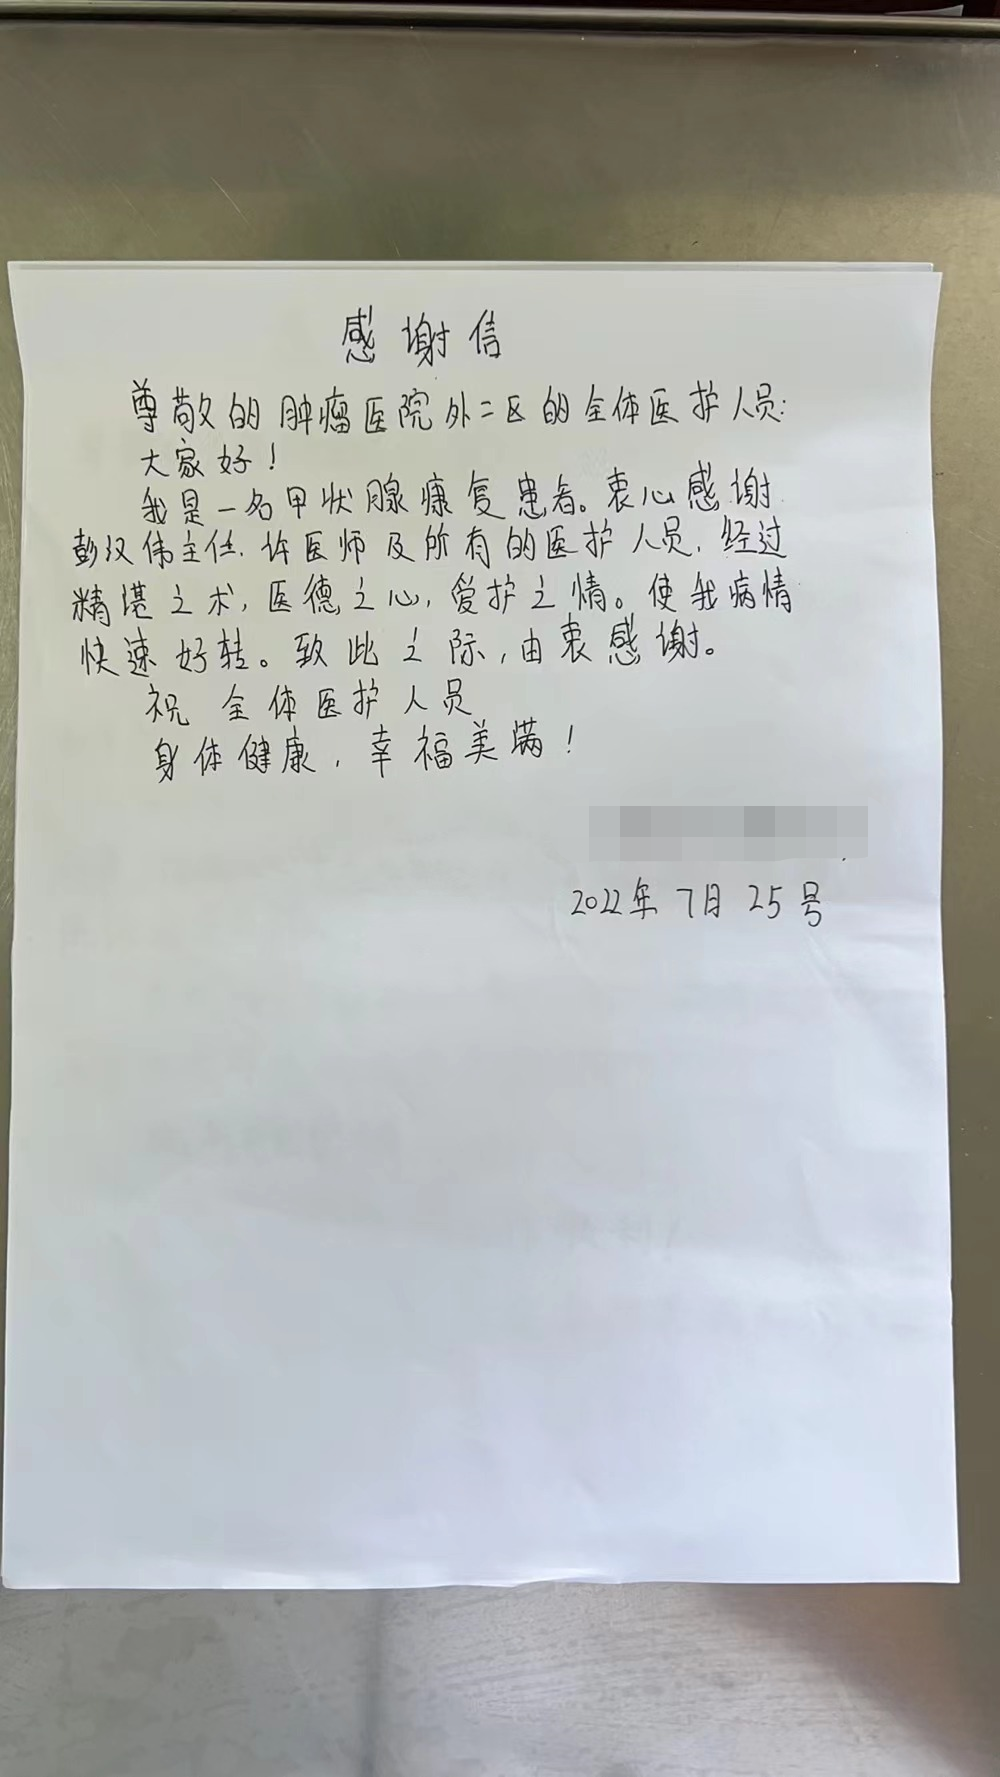 感谢信
尊敬的肿瘤医院外二区的全体医护人员:
大家好!
我是一名甲状腺康复患者。衷心感谢
彭汉伟主任、许医师及所有的医护人员,经过
精湛之术,医德之心,爱护之情。使我病情
快速好转。致此之际,由衷感谢。
祝 全体医护人员
身体健康,幸福美满!
2022年7月25号